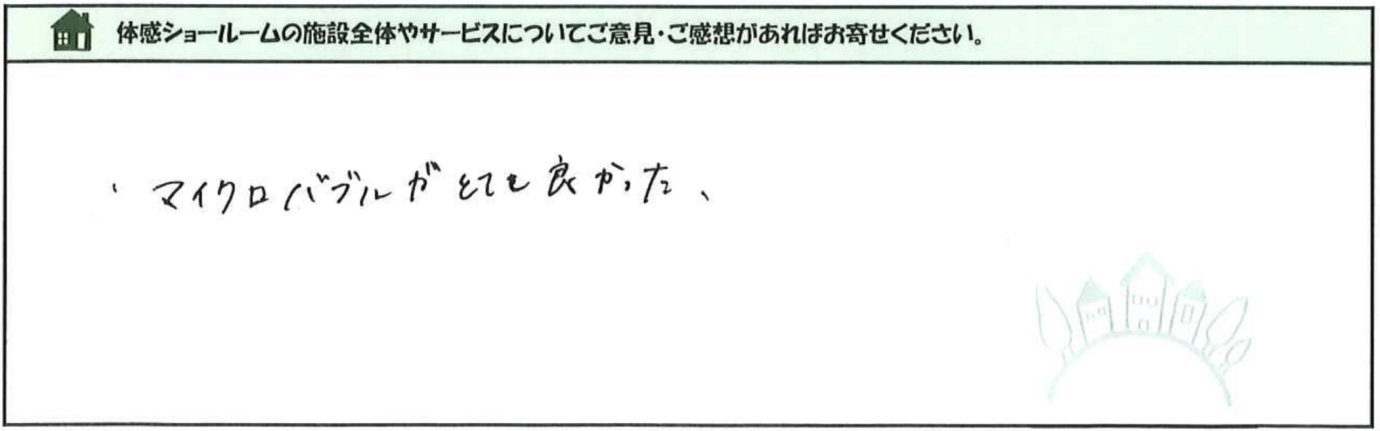 体感ショールームの施設全体やサービスについてご意見・ご感想があればお寄せください。
・マイクロバブルがとても良かった、